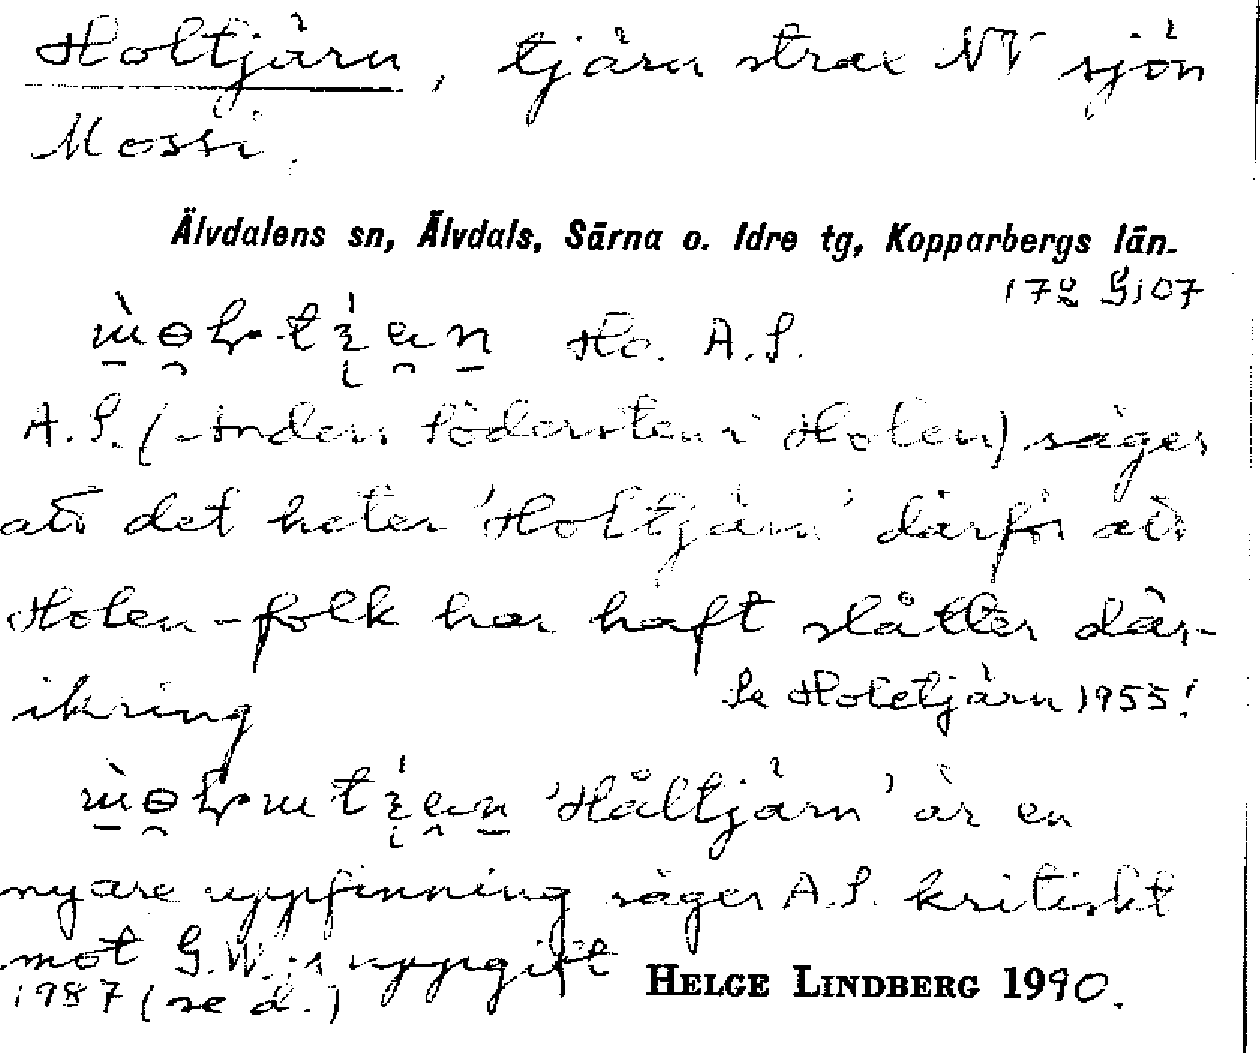 Holtjärn, tjärn strax NV sjön
Mossi.
Älvdalens sn, Älvdals, Särna o. Idre tg, Kopparbergs län.
Ho. A.S.
A.S. (Anders Södersten i Holen) säger
att det heter 'Holtjärn' därför att
Holen-folk har haft slåtter där-
ikring
Se Holetjärn 1955!
'Håltjärn' är en
nyare uppfinning säger A.S. kritiskt
mot G.W.:s uppgift
1987 (se d.)
HELGE LINDBERG 1990.